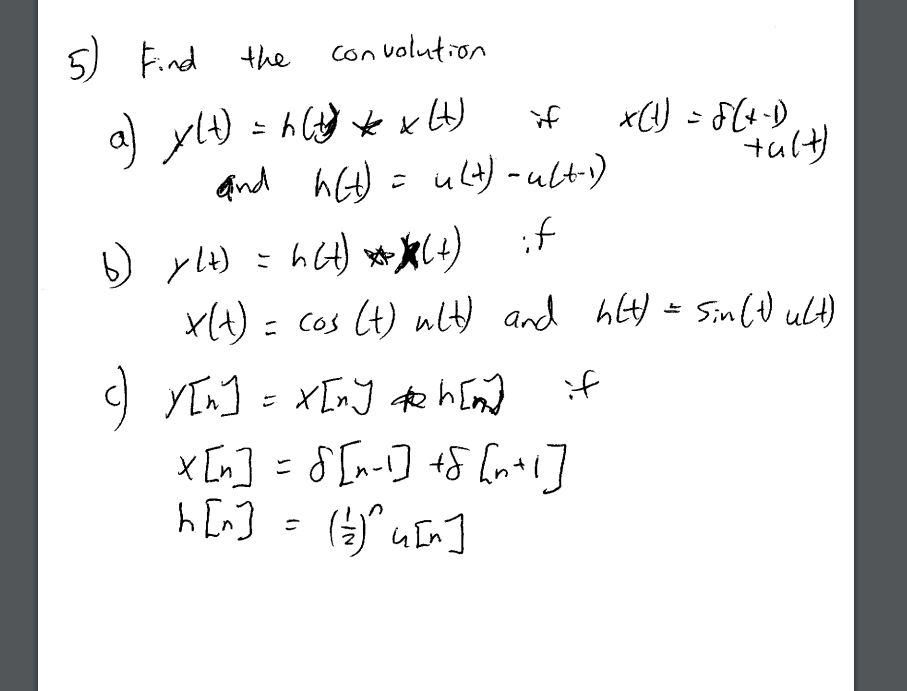 5) Find the convolution
a) y(t) = h(t) * x(t) if x(t) = δ(t-1)
+u(t)
and h(t) = u(t) - u(t-1)
b) y(t) = h(t) * x(t) if
x(t) = cos (t) u(t) and h(t) = sin(t) u(t)
c) y[n] = x[n] * h[n] if
x[n] = δ[n-1] +δ[n+1]
h[n] = (1/2)^n u[n]